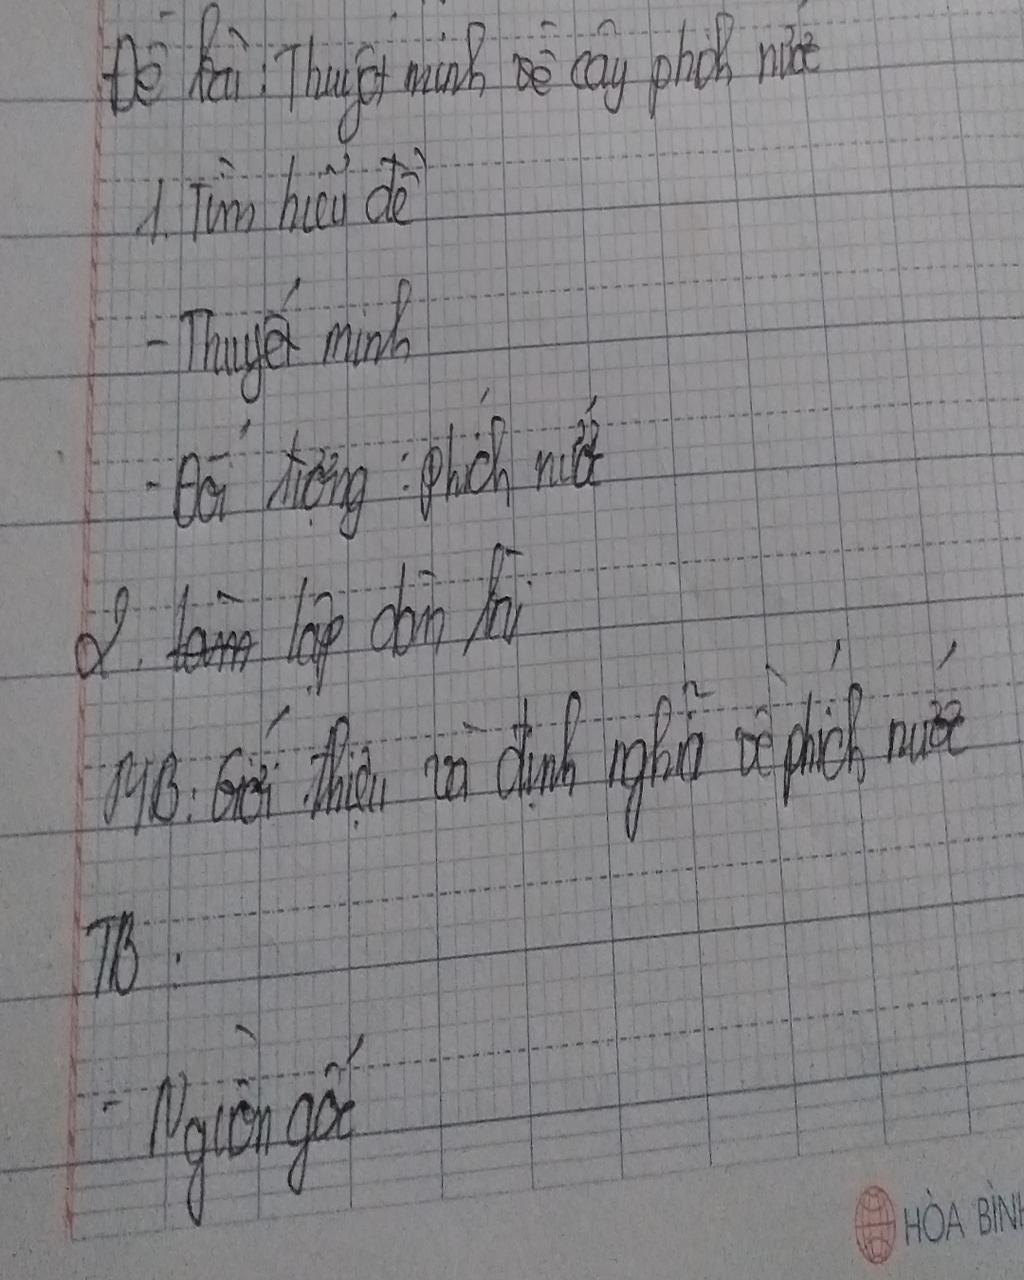 Đề bài: Thuyết minh về cây phích nước
1. Tìm hiểu đề
- Thuyết minh
- Đối tượng: phích nước
2. làm lập dàn bài
MB: Giới thiệu và định nghĩa về phích nước
TB:
- Nguồn gốc
HÒA BÌNH